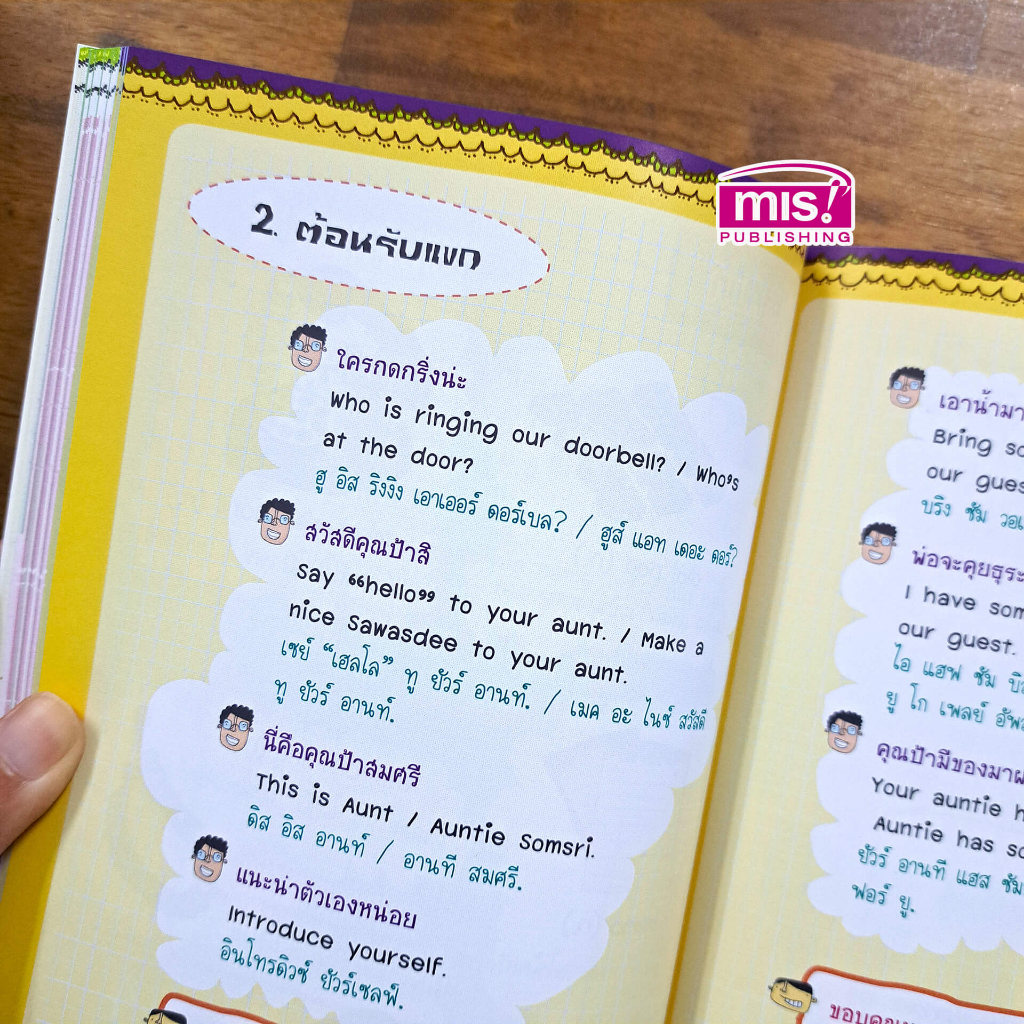 mis!
PUBLISHING
2. ต้อนรับแขก
ใครกดกริ่งน่ะ
Who is ringing our doorbell? / Who's
at the door?
ฮู อิส ริงงิง เอาเออร์ ดอร์เบล? / ฮูส์ แอท เดอะ ดอร์?
สวัสดีคุณป้าสิ
Say “hello” to your aunt. / Make a
nice Sawasdee to your aunt.
เซย์ “เฮลโล” ทู ยัวร์ อานท์. / เมค อะ ไนซ์ สวัสดี
ทู ยัวร์ อานท์.
นี่คือคุณป้าสมศรี
This is Aunt / Auntie Somsri.
ดิส อิส อานท์ / อานที สมศรี.
แนะนำตัวเองหน่อย
Introduce yourself.
อินโทรดิวซ์ ยัวร์เซลฟ์.
เอาน้ำมา
Bring
our
บริง ซัม
พ่อจะคุยธุระ
I have
our guest.
ไอ แฮฟ ซัม
ยู โก เพลย์
คุณป้ามีของมา
Your auntie
Auntie has
ยัวร์ อานที แฮส ซัม
ฟอร์ ยู.